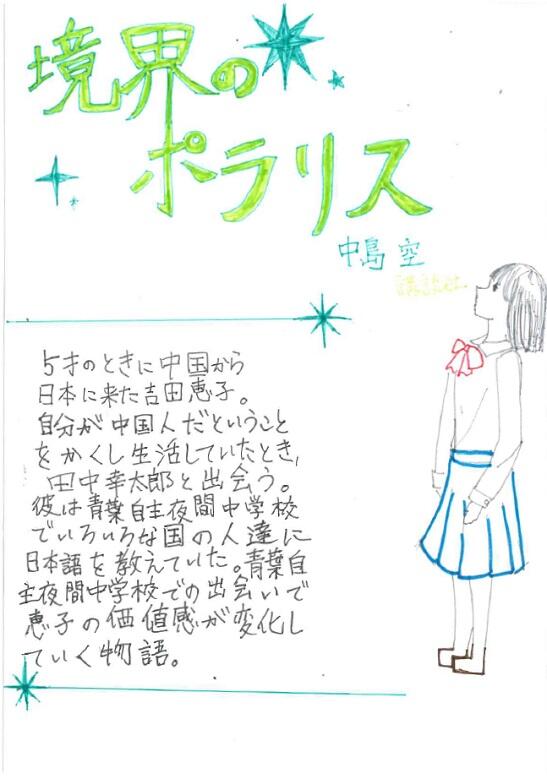 境界の
ポラリス
中島 空
講談社
5才のときに中国から
日本に来た吉田恵子。
自分が中国人だということ
をかくし生活していたとき、
田中幸太郎と出会う。
彼は青葉自主夜間中学校
でいろいろな国の人達に
日本語を教えていた。青葉自
主夜間中学校での出会いで
恵子の価値感が変化し
ていく物語。